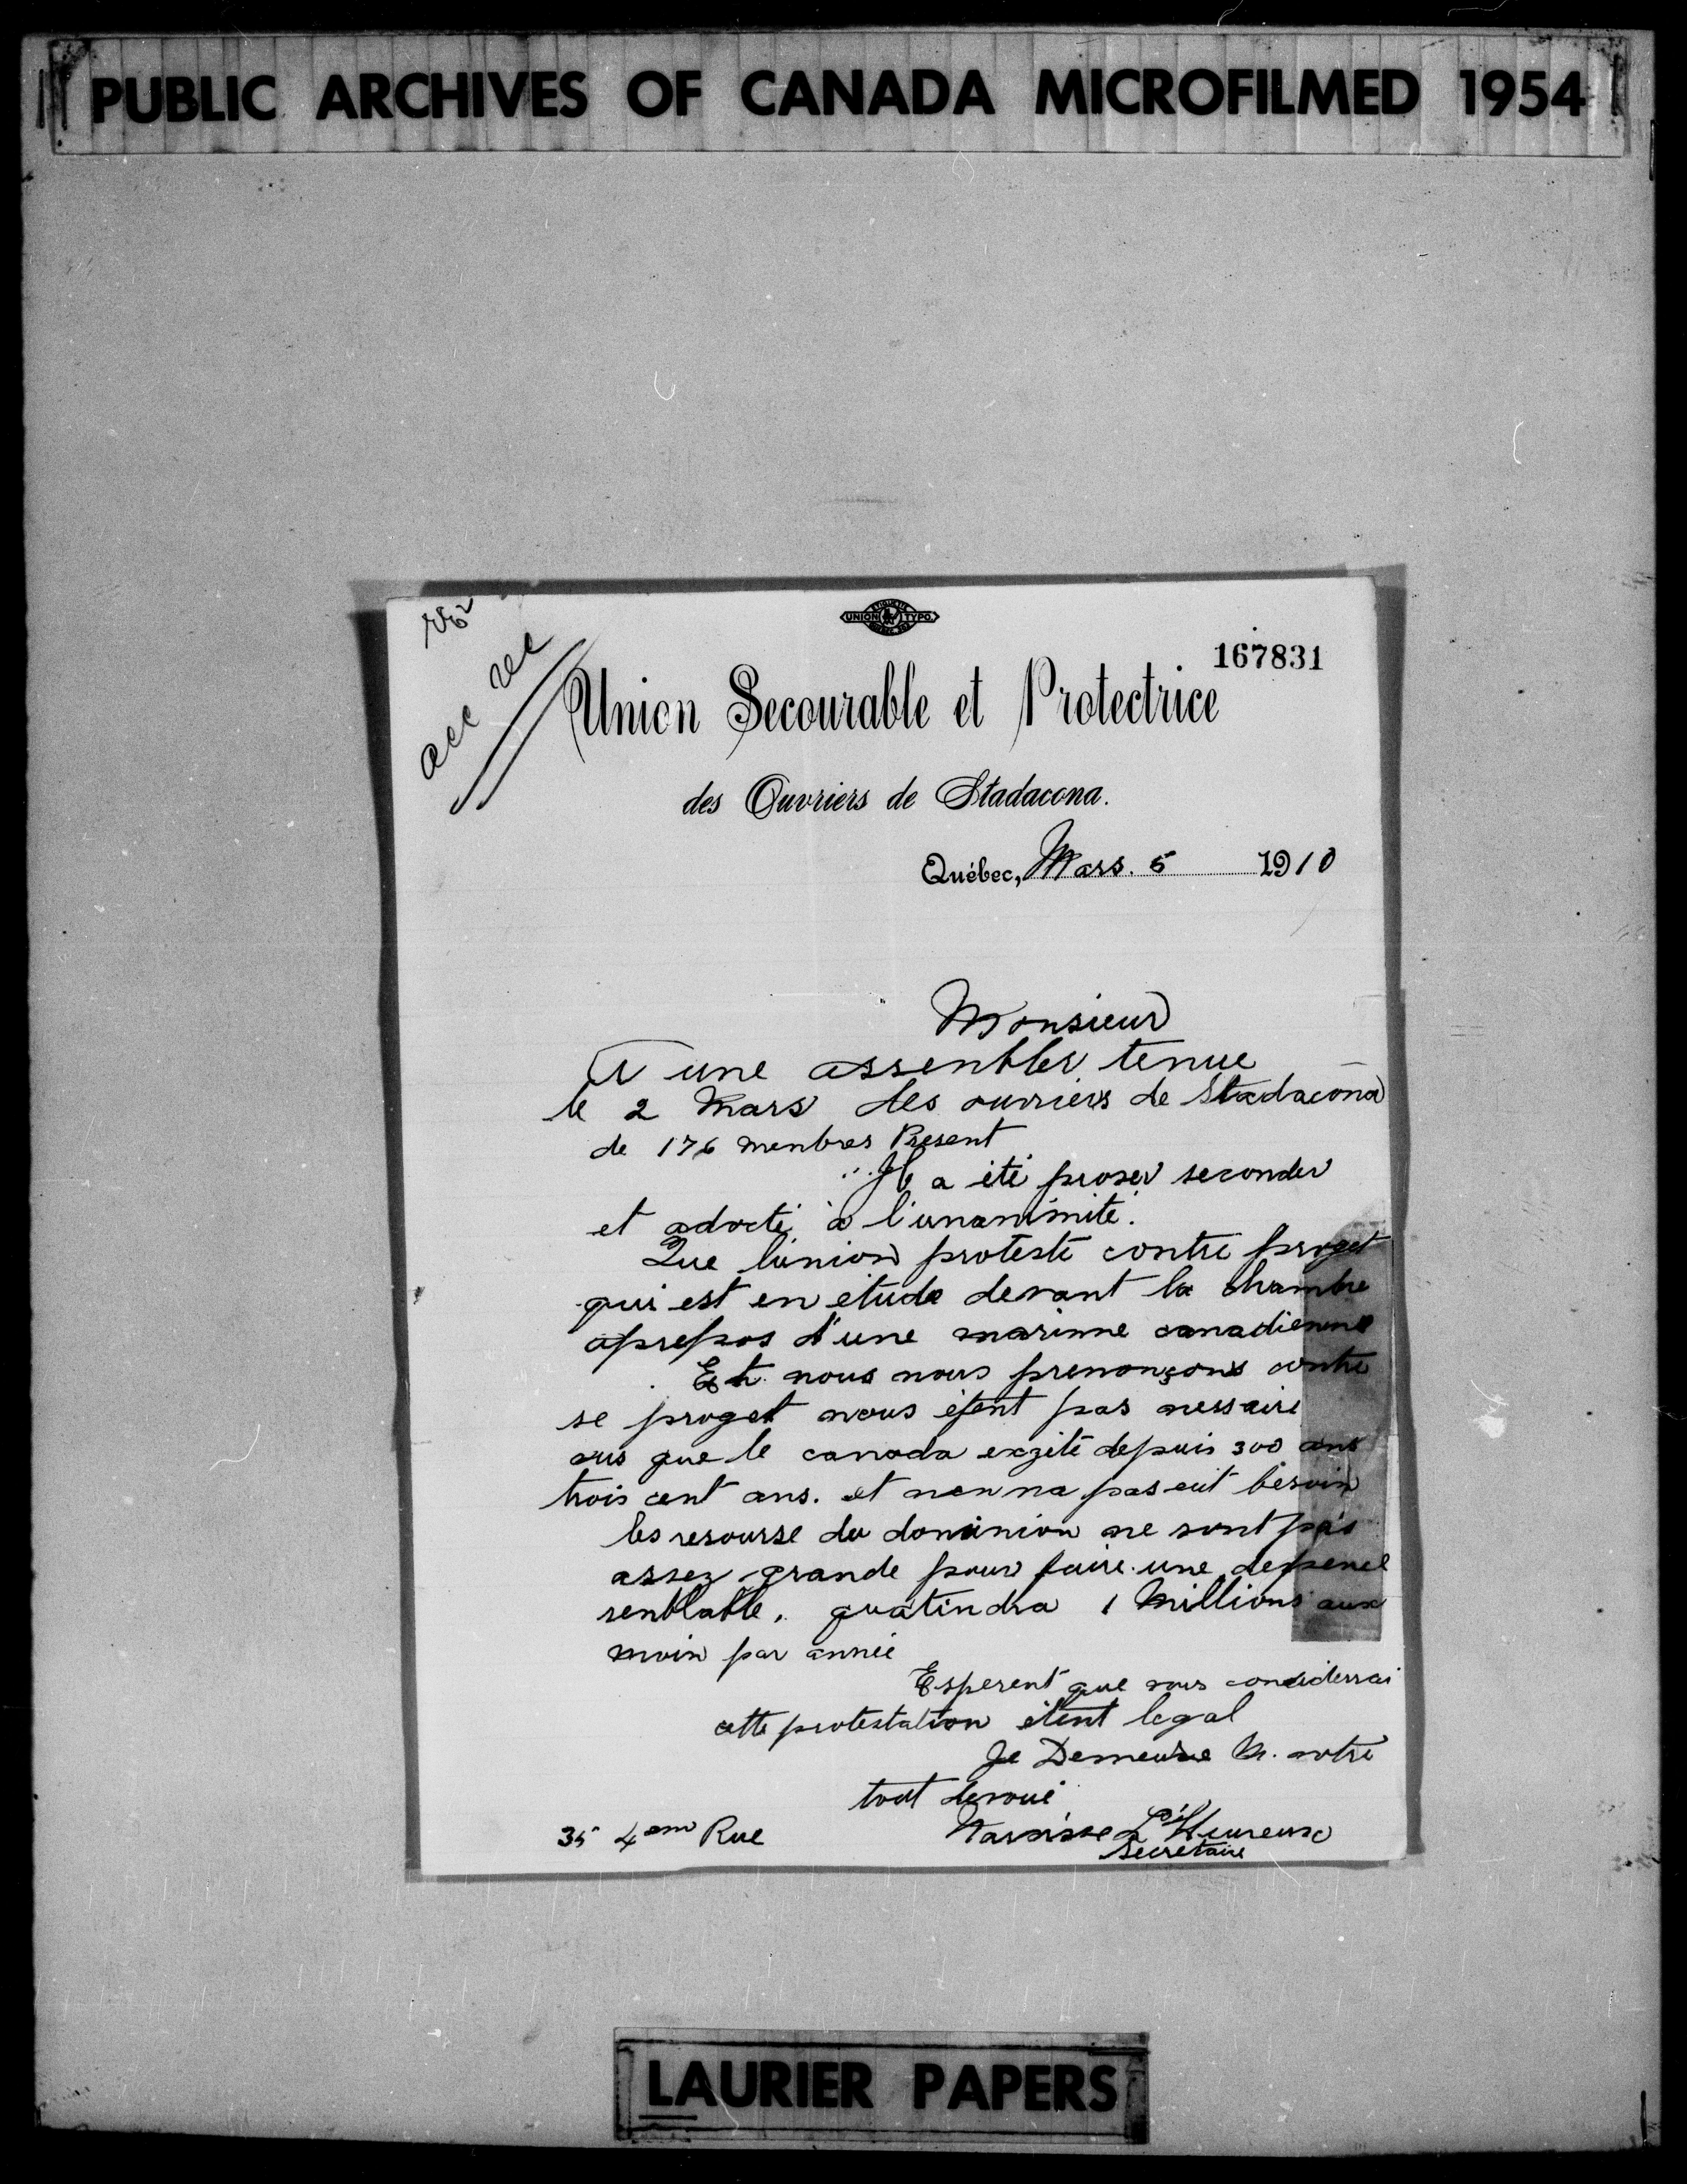 PUBLIC ARCHIVES OF CANADA MICROFILMED 1954
acc rec
ETIQUETTE
UNION TYPO.
167831
Union Secourable et Protectrice
des Ouvriers de Stadacona.
Québec, Mars. 5 1910
Monsieur
A une assembler tenue
le 2 Mars des ouvriers de Stadacona
de 176 menbres Present
Il a été proser seconder
et adocté à l'unanimité.
Que l'union proteste contre proget
qui est en etude devant la chambre
aprepos d'une marinne canadienne
Et nous nous prenonçons contre
se proget nous étent pas nessaire
vus que le canada exzité depuis 300 ans
trois cent ans. et nen na pas eut besoin
les resourse du dominion ne sont pas
assez grande pour faire une depence
senblable. quatindra 1 Millions aux
moin par année
Esperent que vous considerrai
cette protestation étent legal
Je Demeure M. votre
tout devoué
Narsisse L'Heureux
Secretaire
35 4em Rue
LAURIER PAPERS